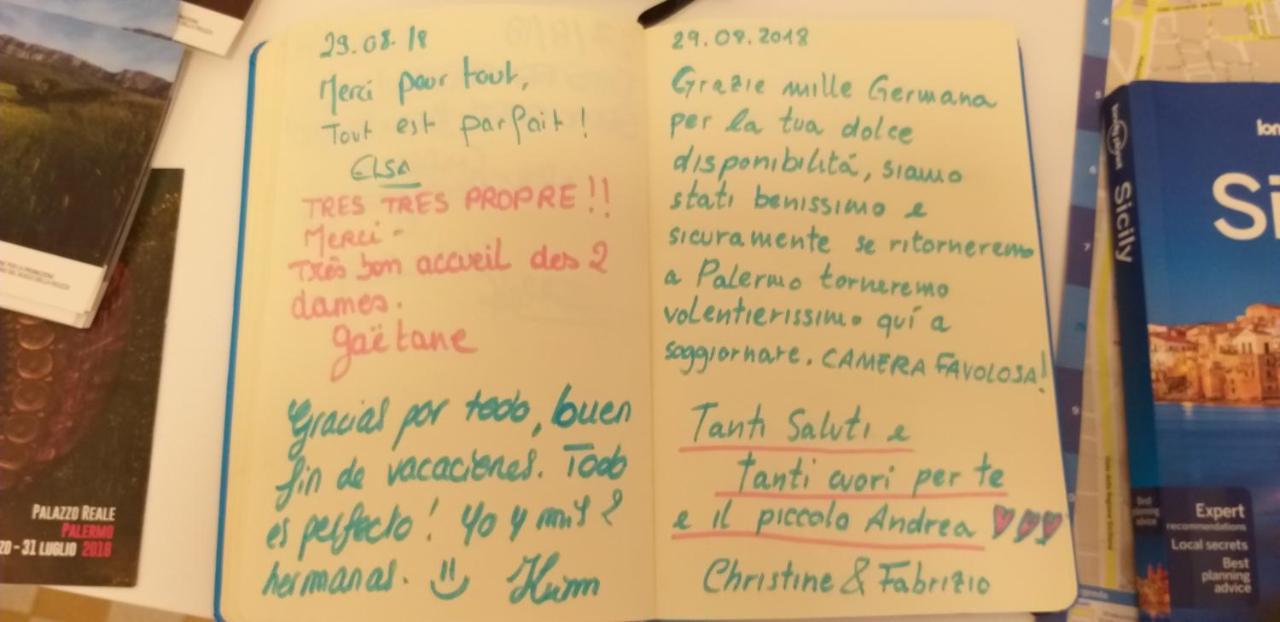 29.08.18
Merci pour tout,
Tout est parfait!
ELSA
TRES TRES PROPRE!!
Merci-
Très bon accueil des 2
dames.
Gaëtane
Gracias por todo, buen
fin de vacaciones. Todo
es perfecto! Yo y mis 2
hermanas.
29.08.2018
Grazie mille Germana
per la tua dolce
disponibilitá, siamo
stati benissimo e
sicuramente se ritorneremo
a Palermo torneremo
volentierissimo quí a
soggiornare. CAMERA FAVOLOSA!
Tanti Saluti e
tanti cuori per te
e il piccolo Andrea
Christine & Fabrizio
PALAZZO REALE
PALERMO
ZO-31 LUGLIO 2018
lonely planet
Sicily
lon
Si
Expert
recommendations
Local secrets
Best
planning
advice